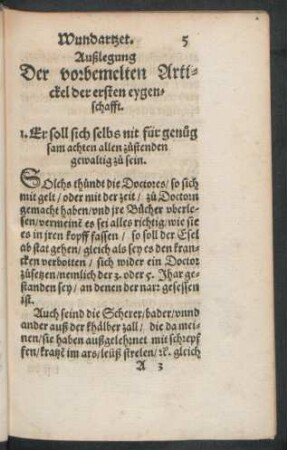 Wundartzet. 5
Außlegung
Der vorbemelten Arti-
ckel der ersten eygen-
schafft.
1. Er soll sich selbs nit für genůg
sam achten allen zůstenden
gewaltig zů sein.
SOlchs thůndt die Doctores / so sich
mit gelt / oder mit der zeit / zů Doctorn
gemacht haben / vnd jre Bücher vberle-
sen / vermeinẽ es sei alles richtig / wie sie
es in jren kopff fassen / so soll der Esel
ab stat gehen / gleich als sey es den kran-
cken verbotten / sich wider ein Doctor
zůsetzen / nemlich der 3. oder 5. Jhar ge-
standen sey / an denen der narr gesessen
ist.
Auch seind die Scherer / bader / vnnd
ander auß der khälber zall / die da mei-
nen / sie haben außgelehrnet mit schrepf
fen / kratzẽ im ars / leüß strelen / ꝛc. gleich
A 3